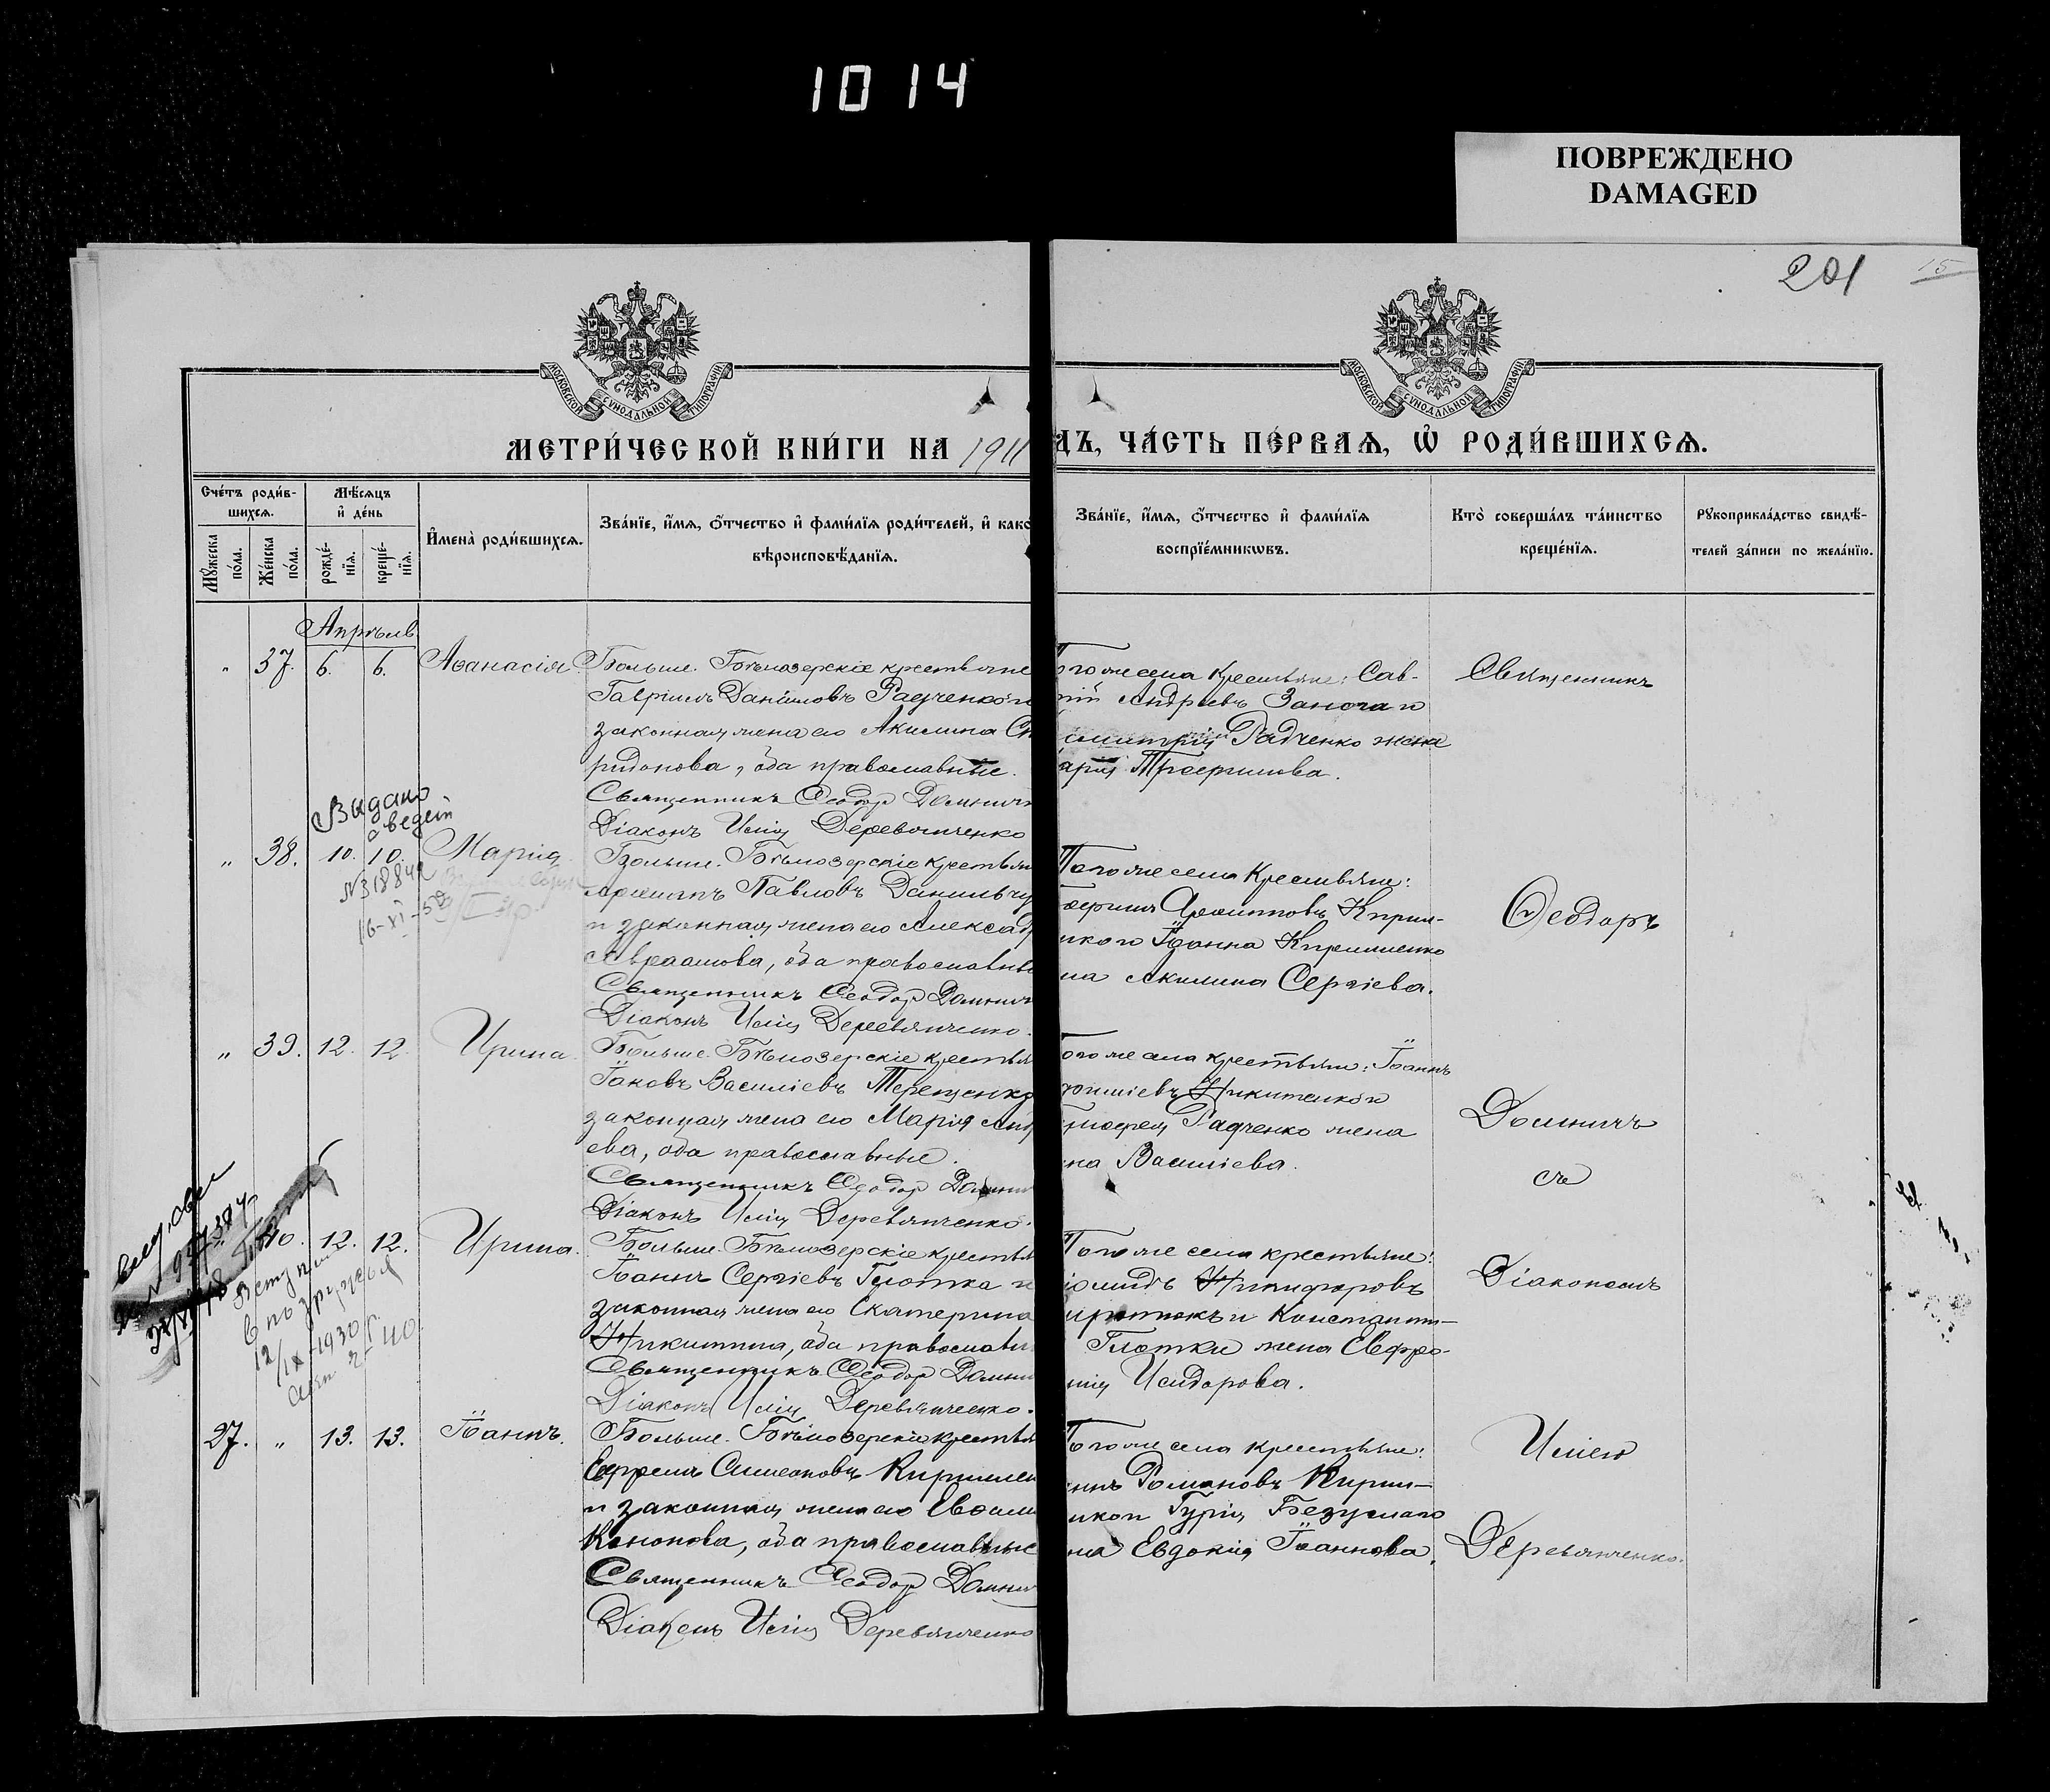 1014
ПОВРЕЖДЕНО
DAMAGED
201
15
МОСКОВСКОЙ СУНОДАЛЬНОЙ ТИПОГРАФІИ
МОСКОВСКОЙ СУНОДАЛЬНОЙ ТИПОГРАФІИ
МЕТРИ́ЧЕСКОЙ КНИ́ГИ НА 1911
ДЪ, ЧА́СТЬ ПЕ́РВАЯ, Ѡ РОДИ́ВШИХСЯ.
Сче́тъ роди́в-
шихся.
Мѣ́сяцъ
и҆ де́нь
Мꙋ́жеска по́ла.
Же́нска по́ла.
рожде́-нїя.
креще́-нїя.
И҆мена̀ роди́вшихся.
Зва́нїе, и҆́мя, ѻ҆́тчество и҆ фами́лїя роди́телей, и҆ како
вѣроисповѣ́данїя.
Зва́нїе, и҆́мя, ѻ҆́тчество и҆ фами́лїя
воспрїе́мникѡвъ.
Кто̀ соверша́лъ та́инство
креще́нїя.
Рꙋкоприкла́дство свидѣ́-
телей за́писи по жела́нїю.
Апрѣль.
" 37. 6. 6. Аѳанасія
Больше-Бѣлозерскіе крестьяне
Гавріилъ Даніиловъ Радченко и
законная жена его Акилина Сп
ридонова, оба православные.
Священникъ Ѳеодор Домнич
Діаконъ Илія Деревянченко
Тогоже села крестьяне: Сав-
Андреевъ Заноча и
Радченко жена
Трофимова.
Священникъ
Выдано
сведет
" 38. 10. 10. Марія
16-XI-
Больше-Бѣлозерскіе крестьян
Павловъ Данильчу
и законная жена его Александ
Авраамова, оба православны
Священникъ Ѳеодор Домнич
Діаконъ Илія Деревянченко.
Тогоже села крестьяне:
Кирил-
Іоанна Кирилленко
на Акилина Сергіева.
Ѳеодоръ
" 39. 12. 12. Ирина.
Больше-Бѣлозерскіе крестья
Іаковъ Василіевъ Терещенко
законная жена его Марія Анд
ева, оба православные.
Священникъ Ѳеодор Домни
Діаконъ Илія Деревянченко.
огоже села крестьяне: Іоаннъ
Никитенко и
Радченко жена
на Василіева.
Домничъ
съ
40. 12. 12. Ирина.
Вступил
12/IX-1930 г.
40
Больше-Бѣлозерскіе крестья
Іоаннъ Сергіевъ Глотка и
законная жена его Екатерина
Никитина, оба православн
Священникъ Ѳеодор Домни
Діаконъ Илія Деревянченко.
Тогоже села крестьяне:
Никифоровъ
и Константи-
Глотки жена Евфро-
нія Исидорова.
Діакономъ
27. " 13. 13. Іоаннъ.
Больше-Бѣлозерскіе крестья
Ефремъ Симеоновъ Кириллен
и законная жена его
Кононова, оба православные
Священникъ Ѳеодор Домни
Діаконъ Илія Деревянченко
Тогоже села крестьяне:
Романовъ Кирил-
Гурія Безуглаго
на Евдокія Іоаннова.
Иліею
Деревянченко.